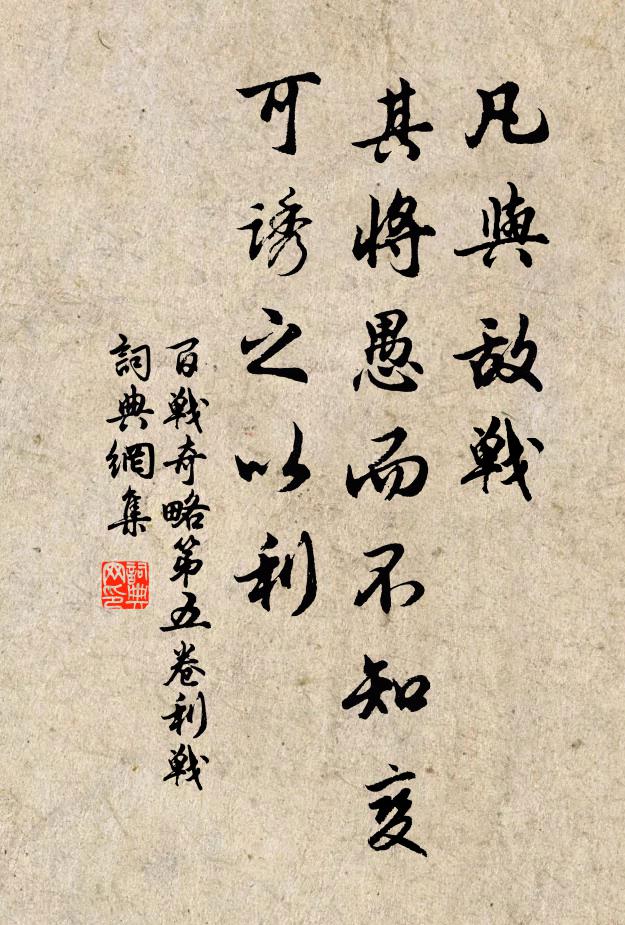 凡與敌戰
其將愚而不知变
可誘之以利
百戰奇略第五卷利戰
詞典網集
詞典
网印